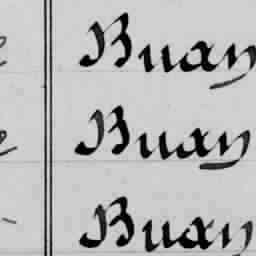 Buay
Buay
Buay